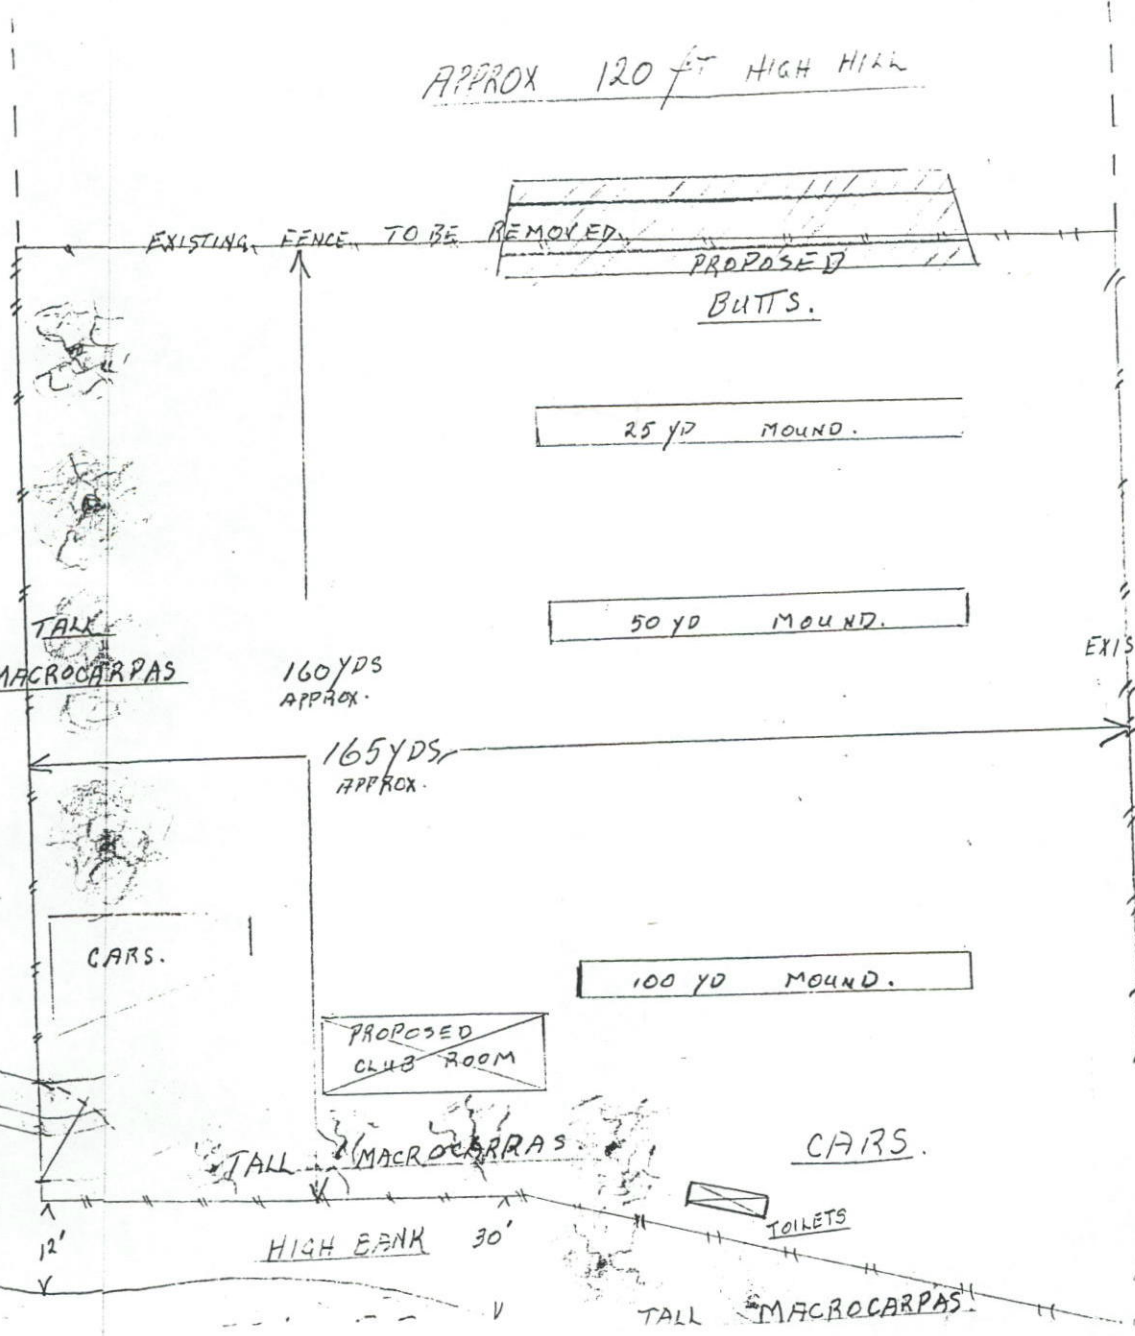 APPROX 120 fT HIGH HILL
EXISTING FENCE TO BE REMOVED.
PROPOSED
BUTTS.
25 YD MOUND.
50 YD MOUND.
TALL
MACROCARPAS
160 YDS
APPROX.
EXIS
165 YDS
APPROX.
CARS.
100 YD MOUND.
PROPOSED
CLUB ROOM
TALL MACROCARPAS
CARS.
TOILETS
12'
HIGH BANK 30'
TALL MACROCARPAS.